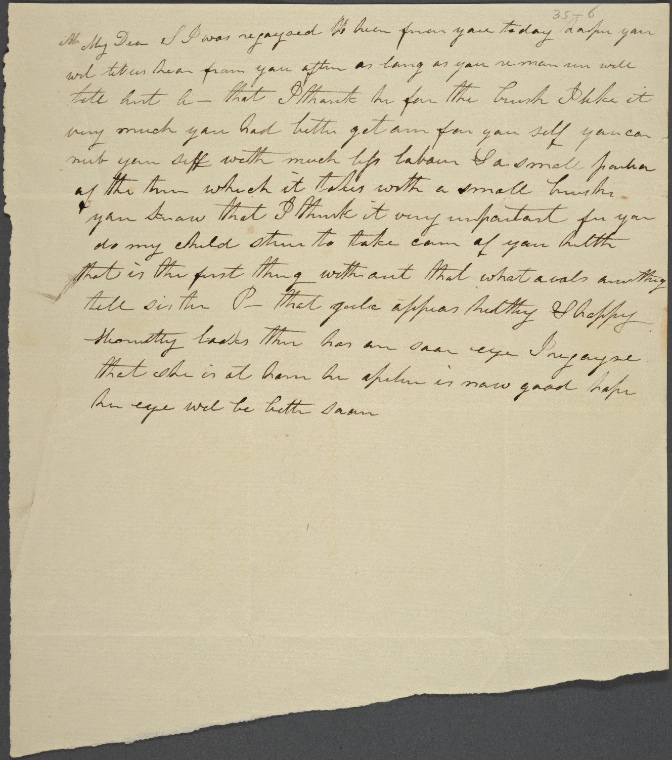 35-6
My Dear S I was regoysed to hear from you to day I hope you
wil let us hear from you often as long as you remain un well
tell sist h— that I thank her for the brush I like it
very much you had better get arn for you self you can
rub your self with much less labour & a small portion
of the time which it takes with a small brush
you know that I think it very important for you
do my child strive to take care of you helth
that is the first thing with out that what avals anything
tell sister P— that gule appeas helthy & happy
looks ther has an soar eye I regoyse
that she is at home her is now good hope
her eye wil be better soon